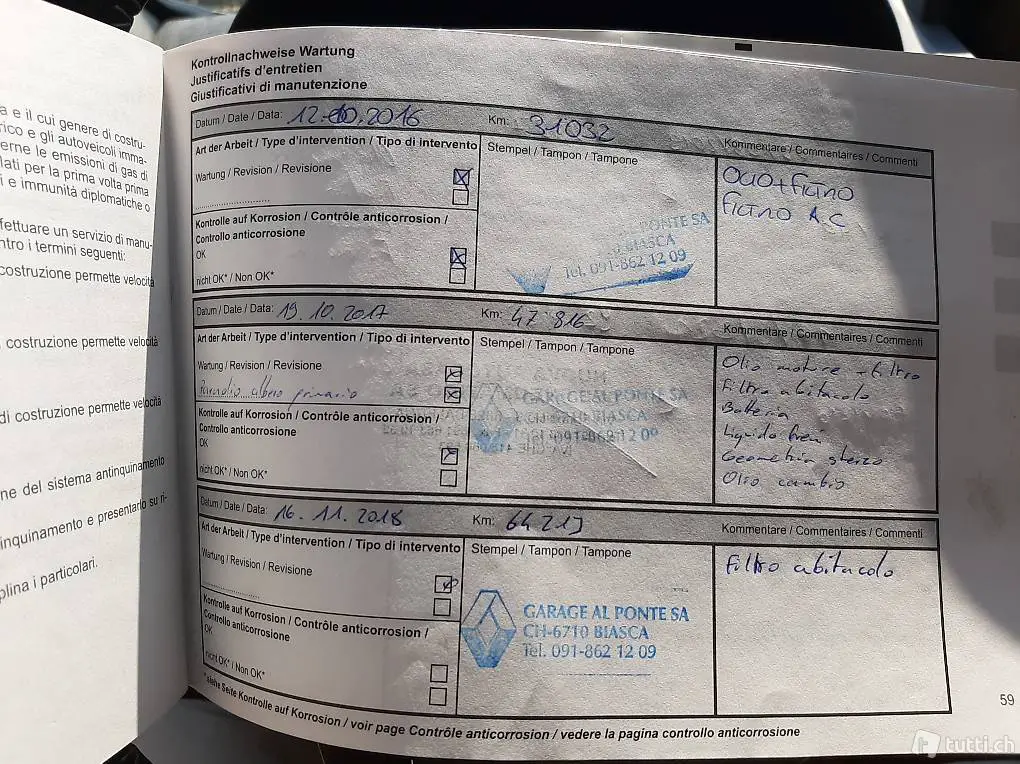 a e il cui genere di costru-
rico e gli autoveicoli imma-
erne le emissioni di gas di
lati per la prima volta prima
i e immunità diplomatiche o
fettuare un servizio di manu-
ntro i termini seguenti:
costruzione permette velocità
costruzione permette velocità
di costruzione permette velocità
ne del sistema antinquinamento
inquinamento e presentarlo su ri-
plina i particolari.
Kontrollnachweise Wartung
Justificatifs d'entretien
Giustificativi di manutenzione
Datum / Date / Data: 12.10.2016 Km: 31032
Art der Arbeit / Type d'intervention / Tipo di intervento
Stempel / Tampon / Tampone
Kommentare / Commentaires / Commenti
Wartung / Revision / Revisione
Kontrolle auf Korrosion / Contrôle anticorrosion /
Controllo anticorrosione
OK
nicht OK* / Non OK*
PONTE SA
BIASCA
Tel. 091-862 12 09
OLIO + FILTRO
FILTRO A.C
Datum / Date / Data: 19.10.2017 Km: 47 816
Art der Arbeit / Type d'intervention / Tipo di intervento
Stempel / Tampon / Tampone
Kommentare / Commentaires / Commenti
Wartung / Revision / Revisione
albero primario
Kontrolle auf Korrosion / Contrôle anticorrosion /
Controllo anticorrosione
OK
nicht OK* / Non OK*
GARAGE AL PONTE SA
CH-6710 BIASCA
Tel. 091-862 12 09
Olio motore + filtro
Filtro abitacolo
Batteria
Liquido freni
Geometria sterzo
Olio cambio
Datum / Date / Data: 16.11.2018 Km: 64213
Art der Arbeit / Type d'intervention / Tipo di intervento
Stempel / Tampon / Tampone
Kommentare / Commentaires / Commenti
Wartung / Revision / Revisione
Kontrolle auf Korrosion / Contrôle anticorrosion /
Controllo anticorrosione
OK
nicht OK* / Non OK*
GARAGE AL PONTE SA
CH-6710 BIASCA
Tel. 091-862 12 09
Filtro abitacolo
*siehe Seite Kontrolle auf Korrosion / voir page Contrôle anticorrosion / vedere la pagina controllo anticorrosione
59
tutti.ch